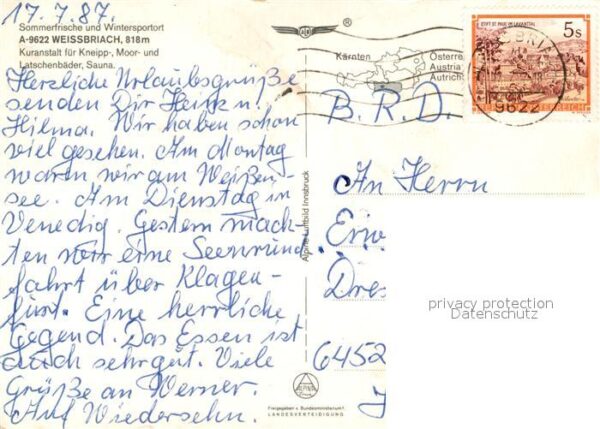 17.7.87.
Sommerfrische und Wintersportort
A-9622 WEISSBRIACH, 818m
Kuranstalt für Kneipp-, Moor- und
Latschenbäder, Sauna.
Herzliche Urlaubsgrüße
senden Dir Heinz u.
Hilma. Wir haben schon
viel gesehen. Am Montag
waren wir am Weißen-
see. Am Dienstag in
Venedig. Gestern mach-
ten wir eine Seenrund
fahrt über Klagen-
furt. Eine herrliche
Gegend. Das Essen ist
auch sehr gut. Viele
Grüße an Werner.
Auf Wiedersehn.
Alpine Luftbild Innsbruck
®
Kärnten
Österre
Austria
Autrich
STIFT ST. PAUL IM LAVANTTAL
5s
9622
B.R.D.
An Herrn
Erw
Dres
6452
privacy protection
Datenschutz
ALPINE
Freigegeben v. Bundesministerium f.
LANDESVERTEIDIGUNG